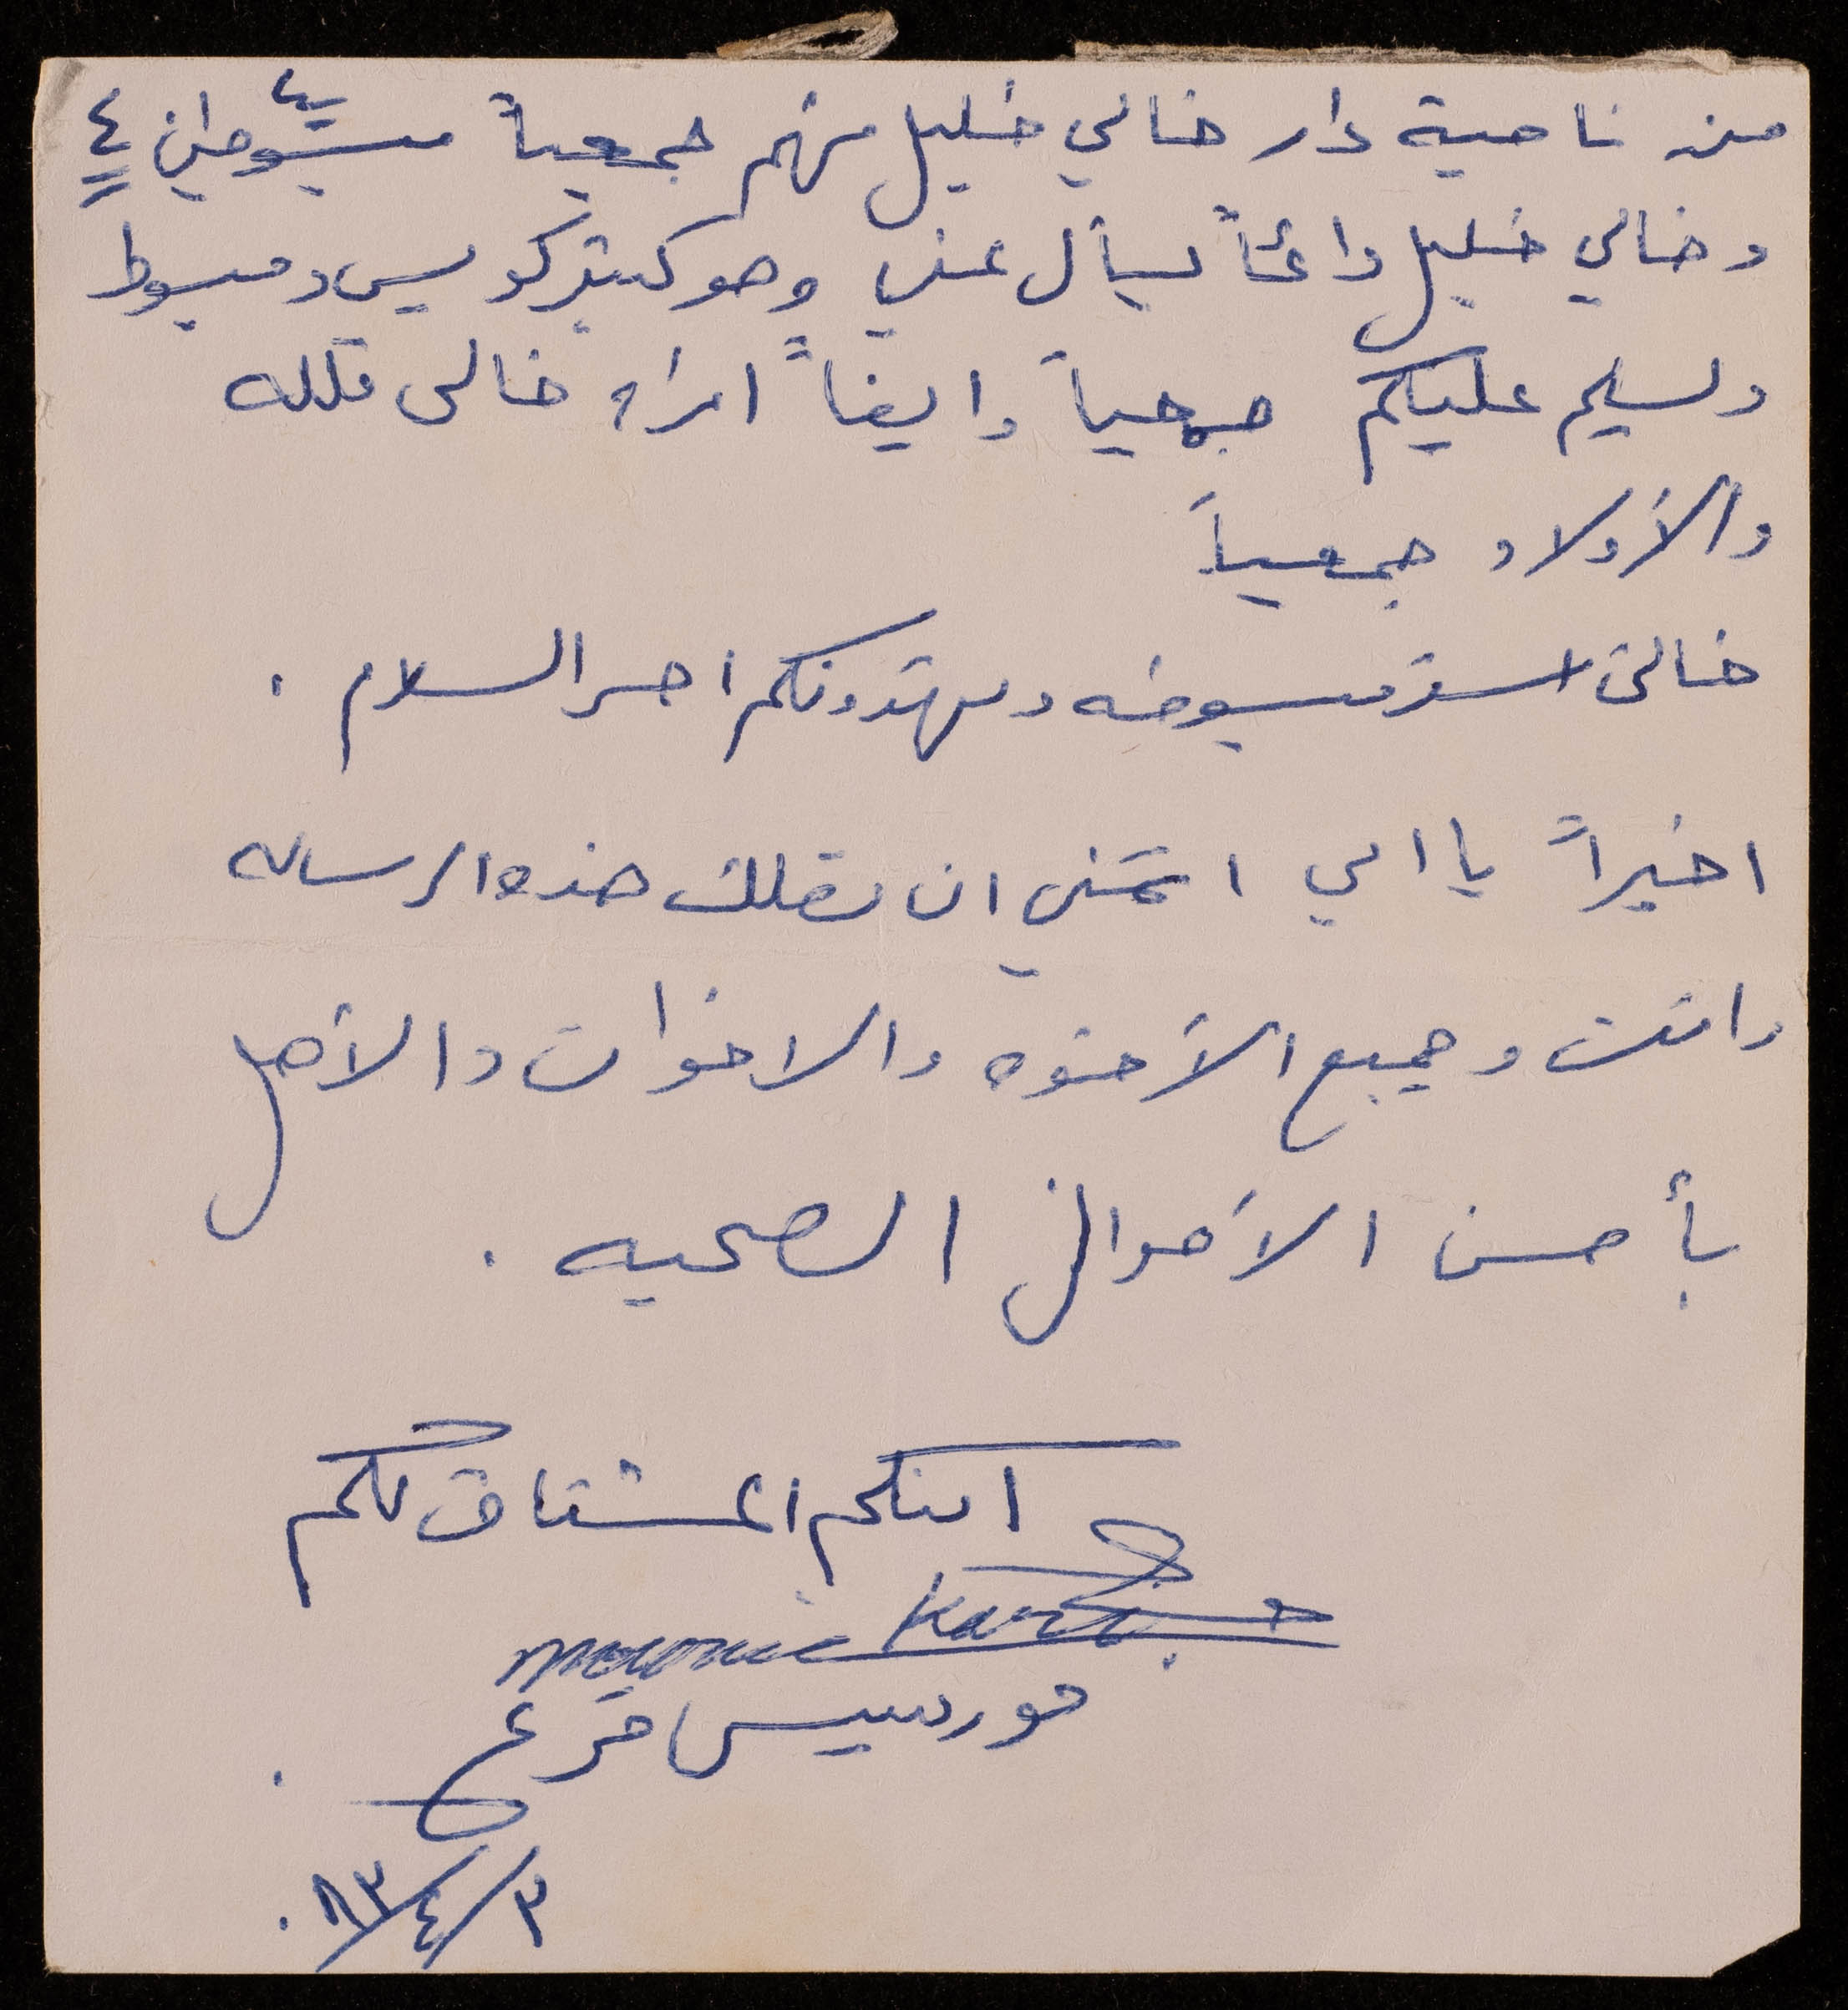 من ناحية دار خالي خليل منهم جمعياً مبسوطين ٤
وخالي خليل دائماً يسأل عني وهو كتير كويس ومبسوط
ويسلم عليكم جمعياً وايضاً امرأة خالي
والأولاد جمعياً
خالتي مبسوطه ويهدونكم احر السلام .
اخيراً يا امي اتمنى ان تصلك هذه الرساله
وانت وجميع الأخوه والاخوات والأهل
بأحسن الأحوال الصحيه .
ابنكم المشتاق لكم
موريس قرع .
٣/٤/٨٣ .